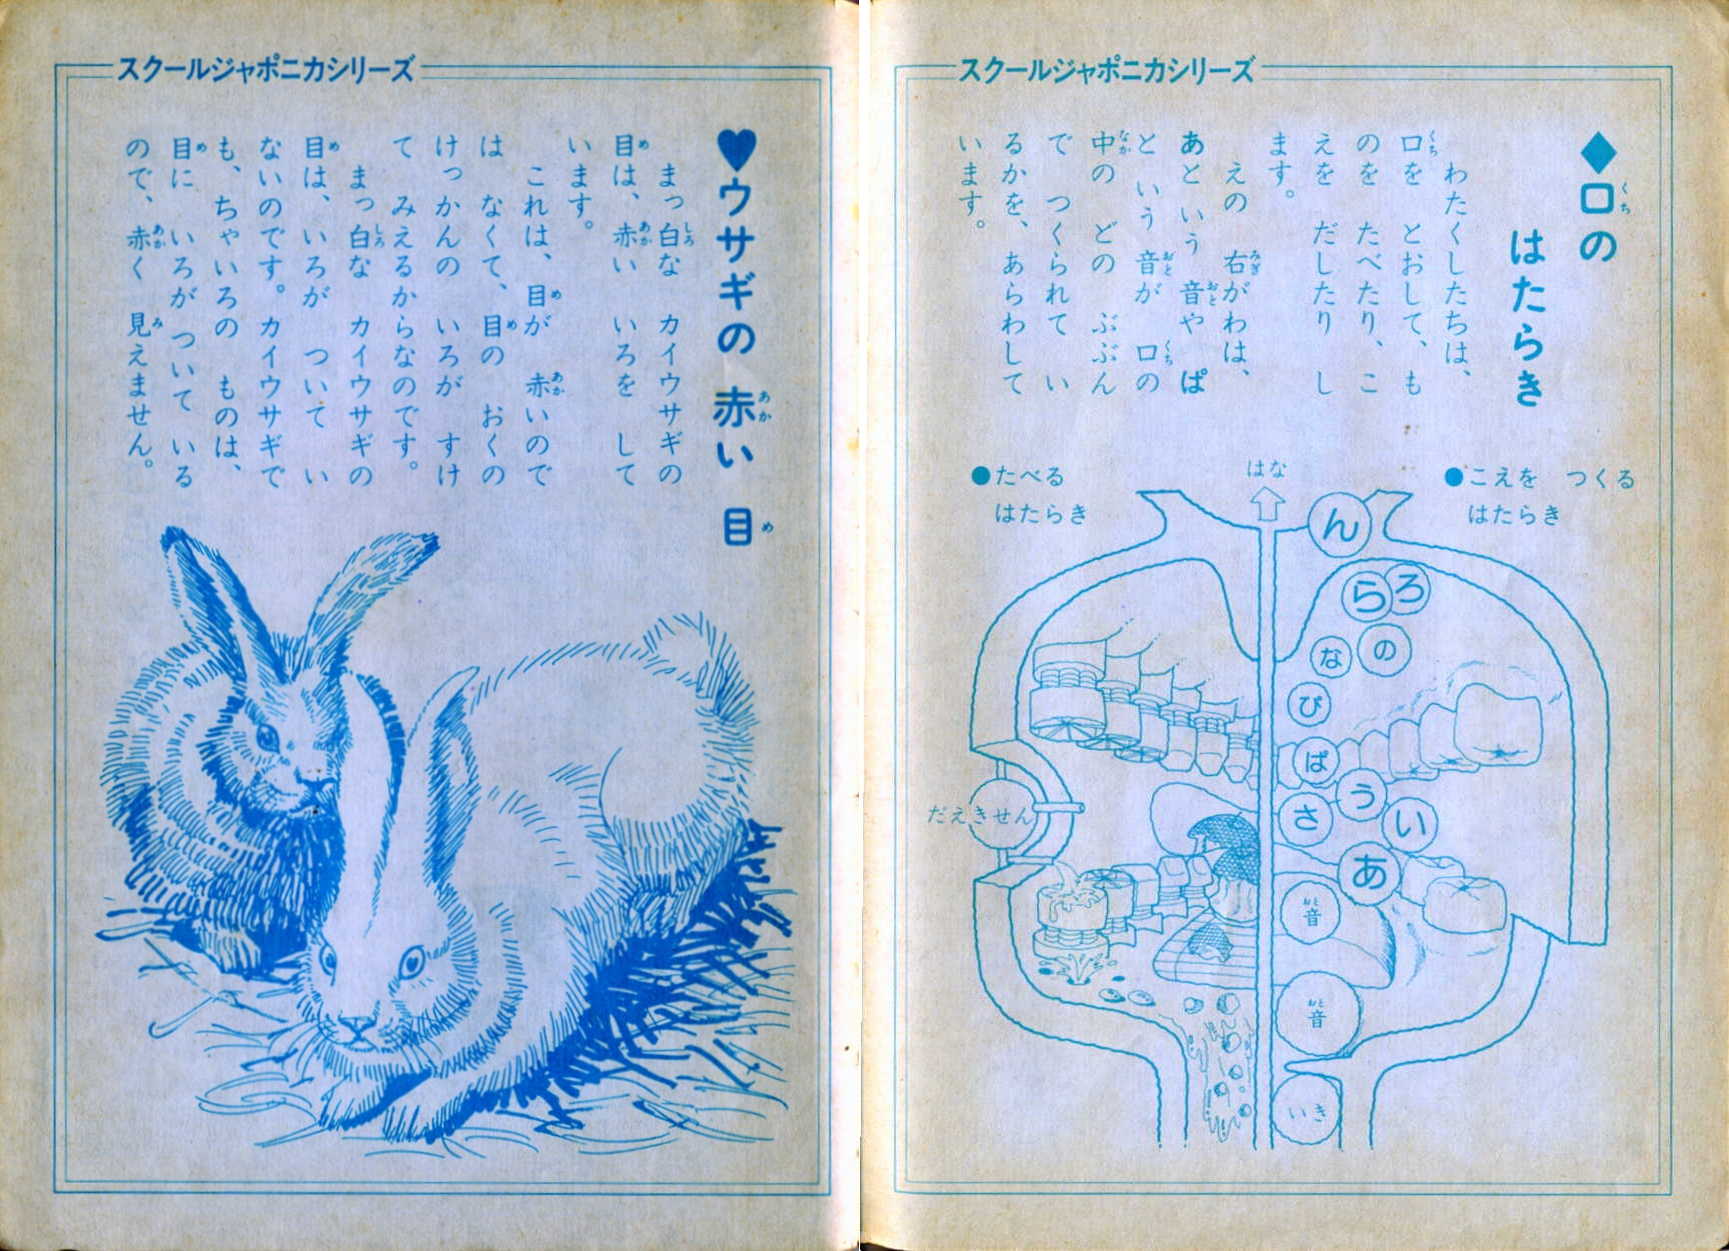 スクールジャポニカシリーズ
◆口(くち)の
はたらき
わたくしたちは、
口(くち)を とおして、も
のを たべたり、こ
えを だしたり し
ます。
えの 右(みぎ)がわは、
あと いう 音(おと)や ぱ
と いう 音(おと)が 口(くち)の
中(なか)の どの ぶぶん
で つくられて い
るかを、あらわして
います。
●こえを つくる
はたらき
はな
●たべる
はたらき
ん
らろ
な の
び
ぱ
う
さ
い
あ
だえきせん
音(おと)
音(おと)
いき
スクールジャポニカシリーズ
♥ウサギの 赤(あか)い 目(め)
まっ白(しろ)な カイウサギの
目(め)は、赤(あか)い いろを して
います。
これは、目(め)が 赤(あか)いので
は なくて、目(め)の おくの
けっかんの いろが すけ
て みえるからなのです。
まっ白(しろ)な カイウサギの
目(め)は、いろが ついて い
ないのです。カイウサギで
も、ちゃいろの ものは、
目(め)に いろが ついて いる
ので、赤(あか)く 見(み)えません。